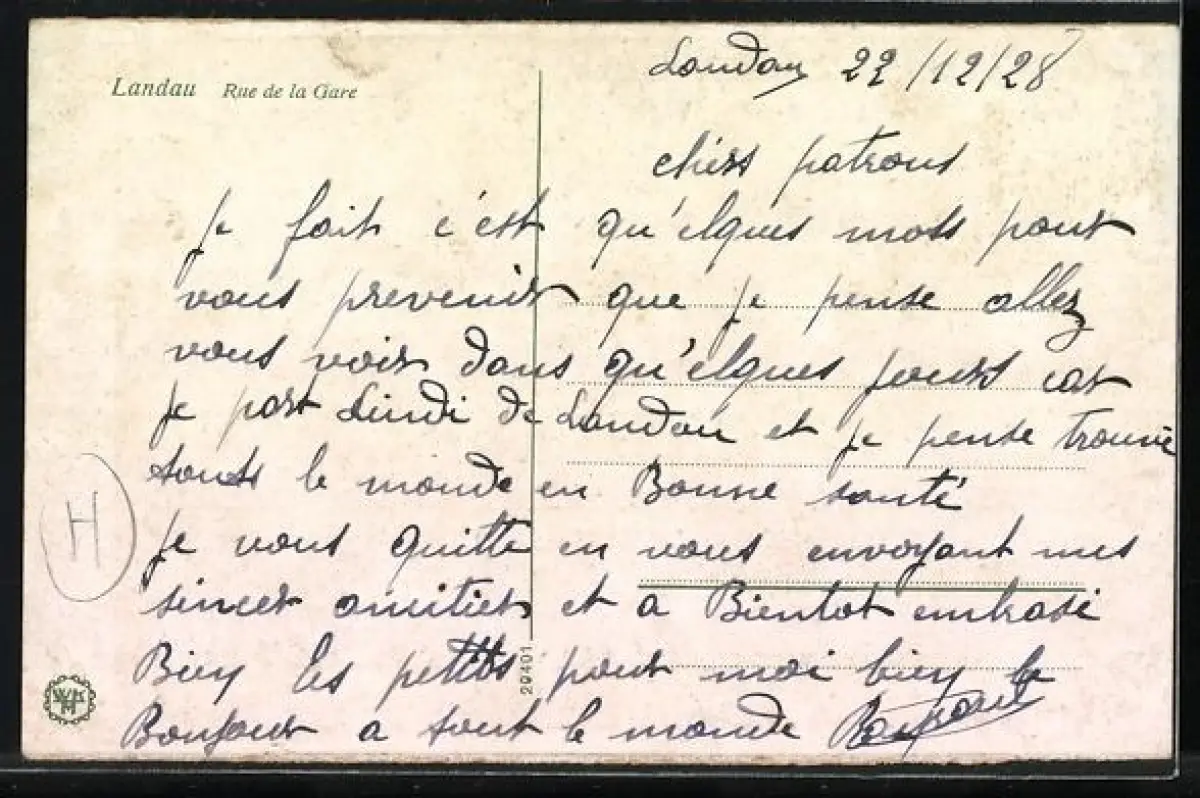 Landau Rue de la Gare
Landau 22/12/28
chers patrons
Je fait c'est qu'elques mots pour
vous prevenir que je pense allez
vous voir dans qu'elques jours car
je part Lundi de Landau et je pense trouvé
touts le monde en Bonne santé
Je vous quitte en vous envoyant mes
sincer amitier et a Bientot embrasé
Bien les petits pour moi bien le
Bonjour a tout le monde
29401
H